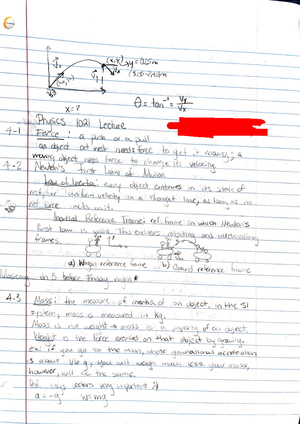 x = ?
θ = tan⁻¹ = Vy/Vx
Physics 1021 Lecture
4-1 Force: a push or a pull
an object at rest needs force to get it moving; a
moving object needs force to change its velocity.
4-2 Newton's first Law of Motion
Law of Inertia: every object continues in its state of
rest, or uniform velocity in a straight line, as long as no
net force acts on it.
Inertial Reference Frames: ref. frame in which Newton's
first law is valid. This excludes rotating and accelerating
frames.
a) Wagon reference frame b) Ground reference frame
on 5 before Friday night*
4-3 Mass: the measure of inertia of an object, in the SI
system, mass is measured in kg.
Mass is not weight → mass is a property of an object.
Weight is the force exerted on that object by gravity.
ex: If you go to the moon, whose gravitational acceleration
is about 1/6 g, you will weigh much less. Your mass,
however, will be the same.
says vectors very important
a = -g W = mg